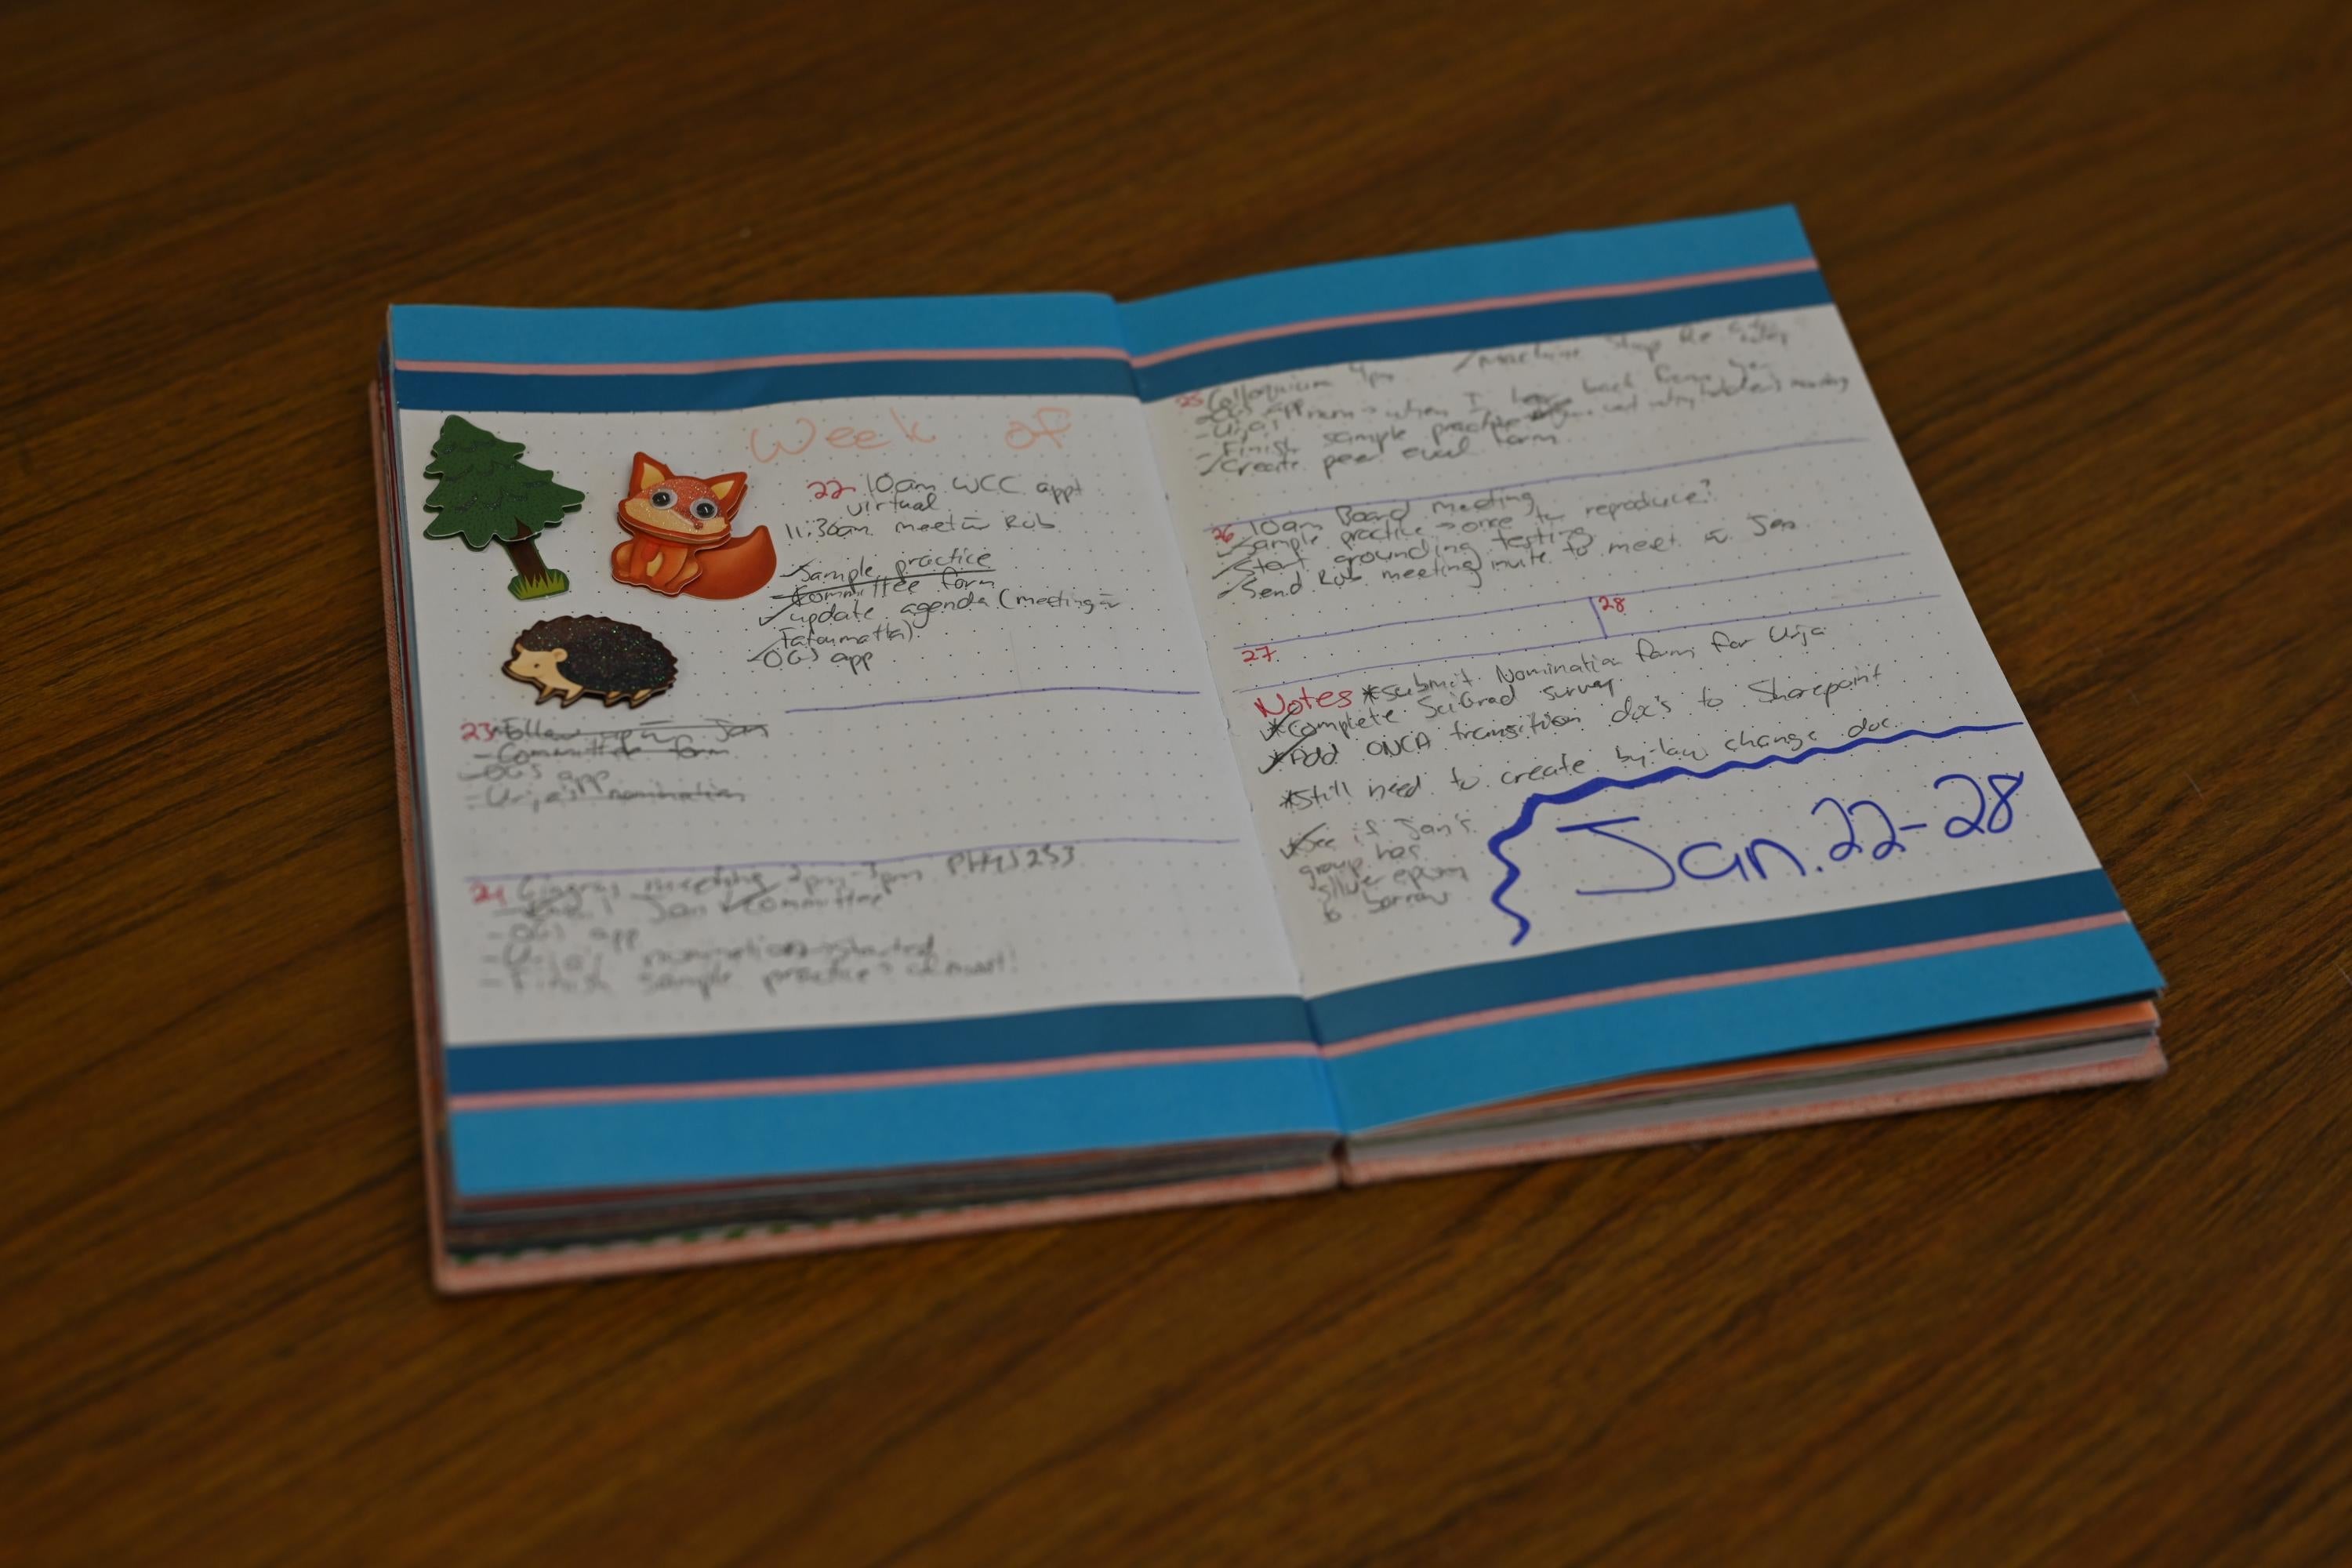 Week of
22 10am WCC appt
virtual
11:30am meet w Rob
Sample practice
Committee form
update agenda (meeting w
OGS app
23 Follow up w Jan
- Committee form
- OGS app
- Urja's nomination
24 meeting 2pm-3pm PHYS 253
Jan committee
- OGS app
- Urja's nomination → started
- Finish sample practice → almost!
25 Colloquium 4pm
Machine Shop
- OGS app
- Urja's nom → when I hear back from
- Finish sample practice
Create peer eval form
26 10am Board meeting
Sample practice → once to reproduce?
Start grounding testing
Send Rob meeting invite to meet w Jan
27
28
Notes *Submit Nomination form for Urja
*Complete SciGrad survey
*Add ONCA transition doc's to Sharepoint
*Still need to create by-law change doc.
*See if Jan's
group has
silver epoxy
to borrow
Jan. 22-28